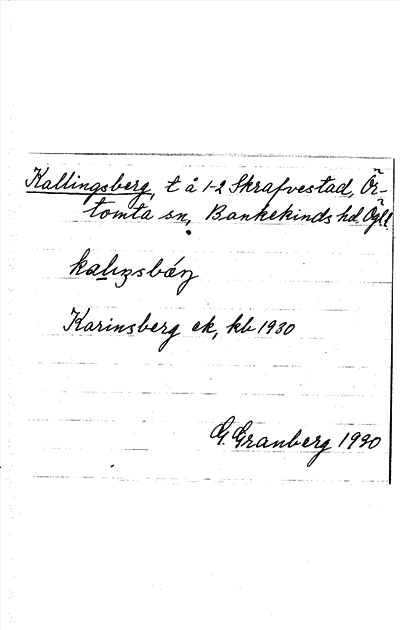 Kallingsberg, t å 1-2 Skrafvestad, Ör-
tomta sn, Bankekinds hd, Ögl.
Karinsberg ek, kb 1930
G. Granberg 1930